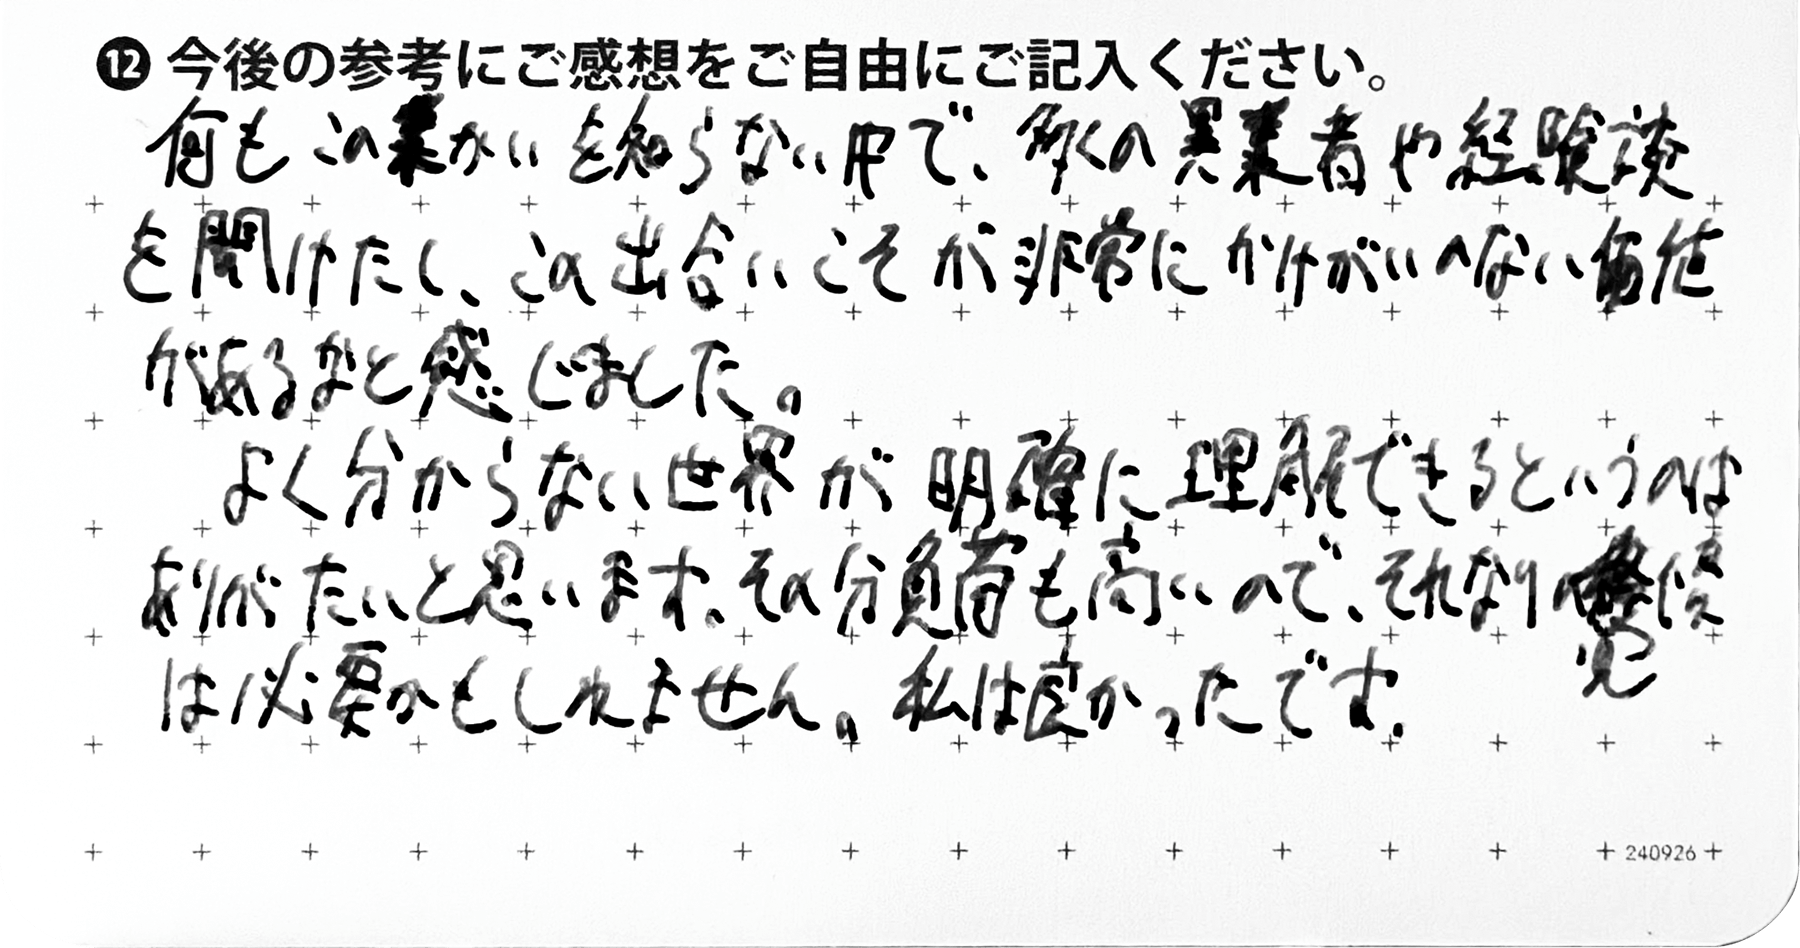 ⓬ 今後の参考にご感想をご自由にご記入ください。
何もこの業かいを知らない中で、多くの異業者や経験談
を聞けたし、この出合いこそが非常にかけがいへない価値
があるなと感じました。
よく分からない世界が明確に理解できるというのは
ありがたいと思います、その分負荷も高いので、それなりの覚悟
は必要かもしれません。私は良かったです.
240926